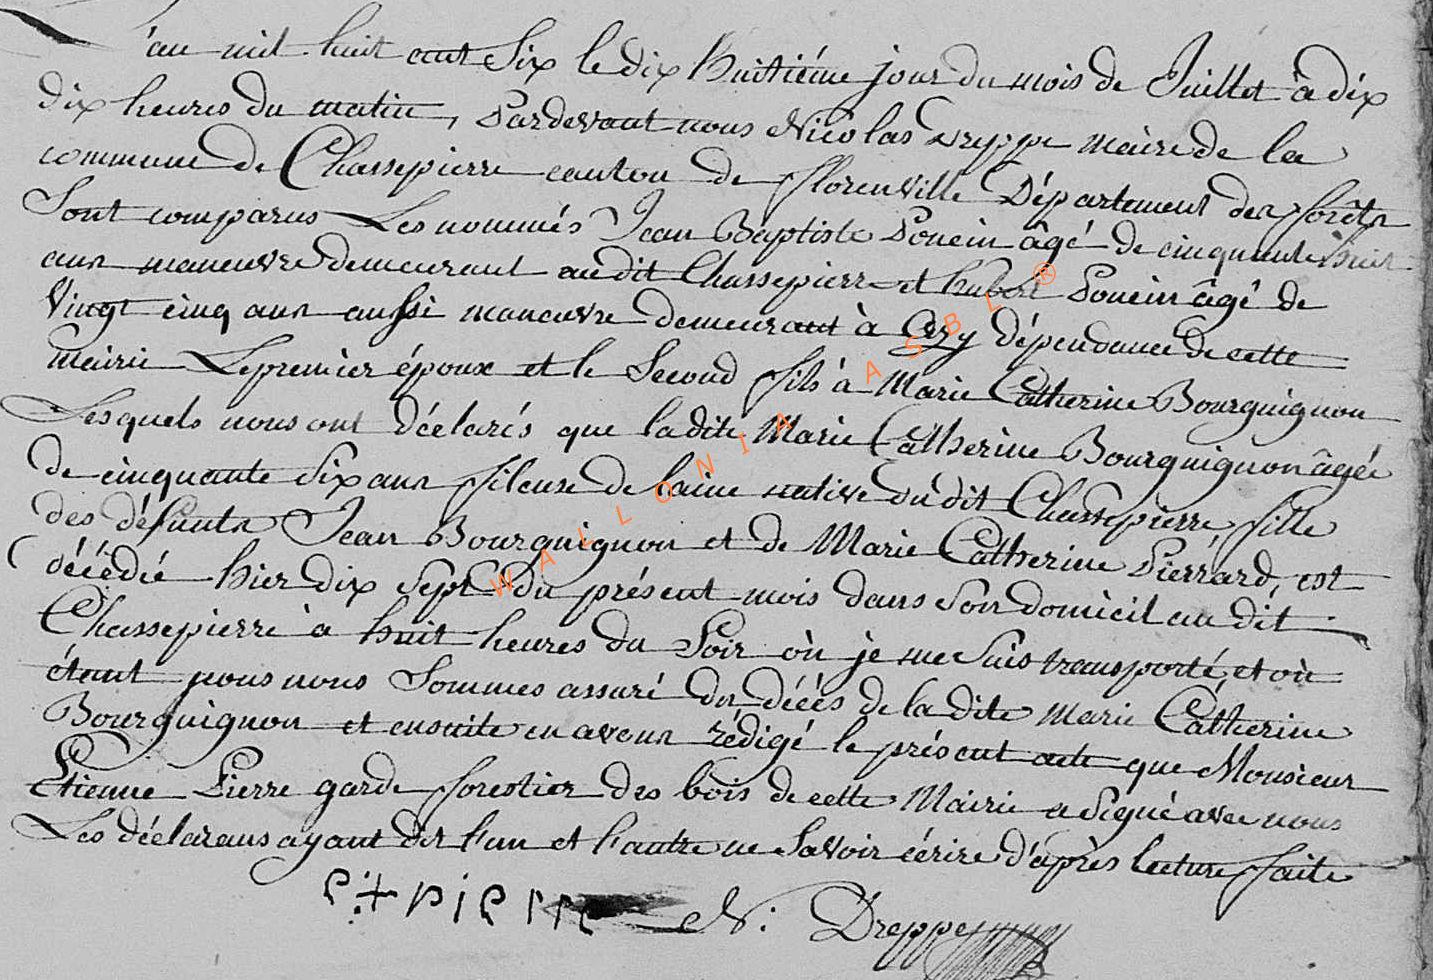 L'an mil huit cent Six le dix huitiéme jour du mois de Juillet à dix
dix heures du matin, Pardevant nous Nicolas Dreppe maire de la
commune de Chassepierre canton de florenville Département des forêts
Sont comparus Les nommés Jean Baptiste Poncin âgé de cinquante huit
ans maneuvre demeurant au dit Chassepierre et hubert Poncin âgé de
Vingt cinq ans aussi manœuvre demeurant à Azy dépendance de cette
mairie Le premier époux et le Second fils à Marie Catherine Bourguignon
Lesquels nous ont déclarés que la dite Marie Catherine Bourguignon âgée
de cinquante Six ans fileuse de laine native du dit Chassepierre, fille
des défunts Jean Bourguignon et de Marie Catherine Pierrard, est
décédée hier dix Sept du présent mois dans Son domicil au dit
Chassepierre à huit heures du Soir où je me Suis transporté, et où
étant nous nous Sommes assuré du décés de la dite Marie Catherine
Bourguignon et ensuite en avons rédigé le présent acte que Monsieur
Etienne Pierre garde forestier des bois de cette Mairie a Signé avec nous
Les déclarans ayant dit l'un et l'autre ne Savoir écrire d'après lecture faite
N: Dreppe
WALLONIA ASBL ®